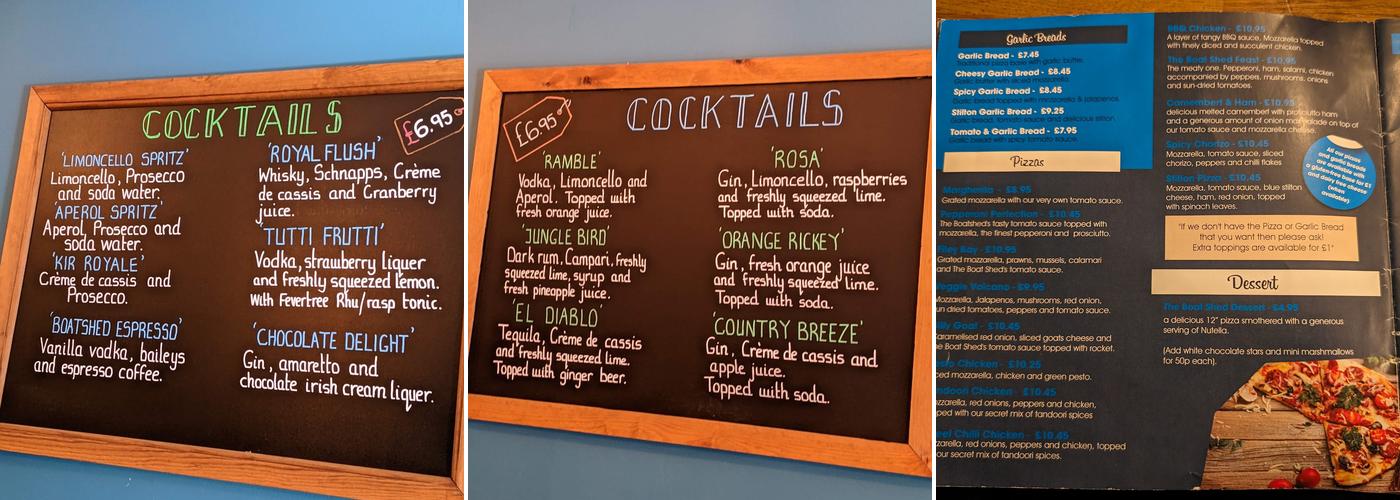 COCKTAILS
£6.95
'LIMONCELLO SPRITZ'
Limoncello, Prosecco
and soda water.
'APEROL SPRITZ'
Aperol, Prosecco and
soda water.
'KIR ROYALE'
Crème de cassis and
Prosecco.
'BOATSHED ESPRESSO'
Vanilla vodka, baileys
and espresso coffee.
'ROYAL FLUSH'
Whisky, Schnapps, Crème
de cassis and Cranberry
juice.
'TUTTI FRUTTI'
Vodka, strawberry liquer
and freshly squeezed lemon.
with Fevertree Rhu/rasp tonic.
'CHOCOLATE DELIGHT'
Gin, amaretto and
chocolate irish cream liquer.
£6.95
COCKTAILS
'RAMBLE'
Vodka, Limoncello and
Aperol. Topped with
fresh orange juice.
'JUNGLE BIRD'
Dark rum, Campari, freshly
squeezed lime, syrup and
fresh pineapple juice.
'EL DIABLO'
Tequila, Crème de cassis
and freshly squeezed lime.
Topped with ginger beer.
'ROSA'
Gin, Limoncello, raspberries
and freshly squeezed lime.
Topped with soda.
'ORANGE RICKEY'
Gin, fresh orange juice
and freshly squeezed lime.
Topped with soda.
'COUNTRY BREEZE'
Gin, Crème de cassis and
apple juice.
Topped with soda.
Garlic Breads
Garlic Bread - £7.45
Traditional pizza base with garlic butter.
Cheesy Garlic Bread - £8.45
Garlic butter with sliced mozzarella.
Spicy Garlic Bread - £8.45
Garlic bread topped with mozzarella & jalapenos.
Stilton Garlic Bread - £9.25
Garlic bread, tomato sauce and delicious stilton.
Tomato & Garlic Bread - £7.95
Garlic bread with spicy tomato sauce.
Pizzas
Margherita - £8.95
Grated mozzarella with our very own tomato sauce.
Pepperoni Perfection - £10.45
The Boatshed's tasty tomato sauce topped with
mozzarella, the finest pepperoni and prosciutto.
Filey Bay - £10.95
Grated mozzarella, prawns, mussels, calamari
and The Boat Shed's tomato sauce.
Veggie Volcano - £9.95
Mozzarella, Jalapenos, mushrooms, red onion,
dried tomatoes, peppers and tomato sauce.
Goat - £10.45
Caramelised red onion, sliced goats cheese and
Boat Shed's tomato sauce topped with rocket.
- £10.25
mozzarella, chicken and green pesto.
Chicken - £10.45
red onions, peppers and chicken,
with our secret mix of tandoori spices
Chilli Chicken - £10.45
red onions, peppers and chicken, topped
our secret mix of tandoori spices.
BBQ Chicken - £10.95
A layer of tangy BBQ sauce, Mozzarella topped
with finely diced and succulent chicken.
The Boat Shed Feast - £10.95
The meaty one. Pepperoni, ham, salami, chicken
accompanied by peppers, mushrooms, onions
and sun-dried tomatoes.
Camembert & Ham - £10.95
delicious melted camembert with prosciutto ham
and a generous amount of onion marmalade on top of
our tomato sauce and mozzarella cheese.
Spicy Chorizo - £10.45
Mozzarella, tomato sauce, sliced
chorizo, peppers and chilli flakes
Stilton Pizza - £10.45
Mozzarella, tomato sauce, blue stilton
cheese, ham, red onion, topped
with spinach leaves.
All our pizzas
and garlic breads
are available with
a gluten-free base for £1
and dairy free cheese
(when
available)
"If we don't have the Pizza or Garlic Bread
that you want then please ask!
Extra toppings are available for £1"
Dessert
The Boat Shed Dessert - £4.95
a delicious 12" pizza smothered with a generous
serving of Nutella.
(Add white chocolate stars and mini marshmallows
for 50p each).